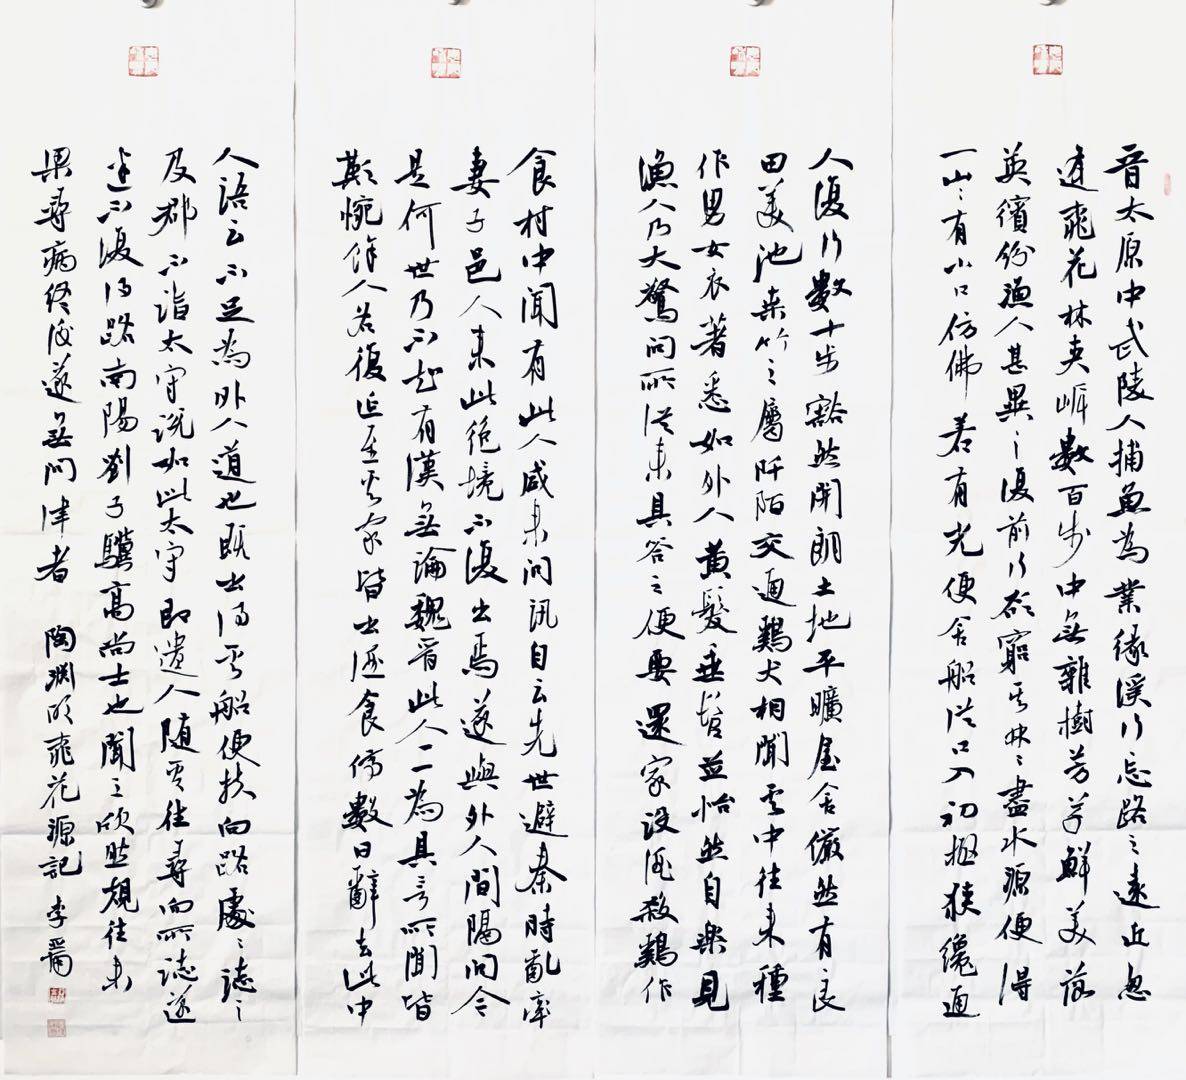 晉太原中武陵人捕魚為業緣溪行忘路之遠近忽
逢桃花林夾岸數百步中無雜樹芳草鮮美落
英繽紛漁人甚異之復前行欲窮其林〻盡水源便得
一山〻有小口仿佛若有光便舍船從口入初極狹纔通
人復行數十步豁然開朗土地平曠屋舍儼然有良
田美池桑竹之屬阡陌交通鷄犬相聞其中往來種
作男女衣著悉如外人黃髮垂髫並怡然自樂見
漁人乃大驚問所從來具答之便要還家設酒殺鷄作
食村中聞有此人咸來問訊自云先世避秦時亂率
妻子邑人來此絕境不復出焉遂與外人間隔問今
是何世乃不知有漢無論魏晉此人一一為具言所聞皆
歎惋餘人各復延至其家皆出酒食停數日辭去此中
人語云不足為外人道也既出得其船便扶向路處〻誌之
及郡下詣太守說如此太守即遣人隨其往尋向所誌遂
迷不復得路南陽劉子驥高尚士也聞之欣然規往未
果尋病終後遂無問津者 陶淵明桃花源記 李